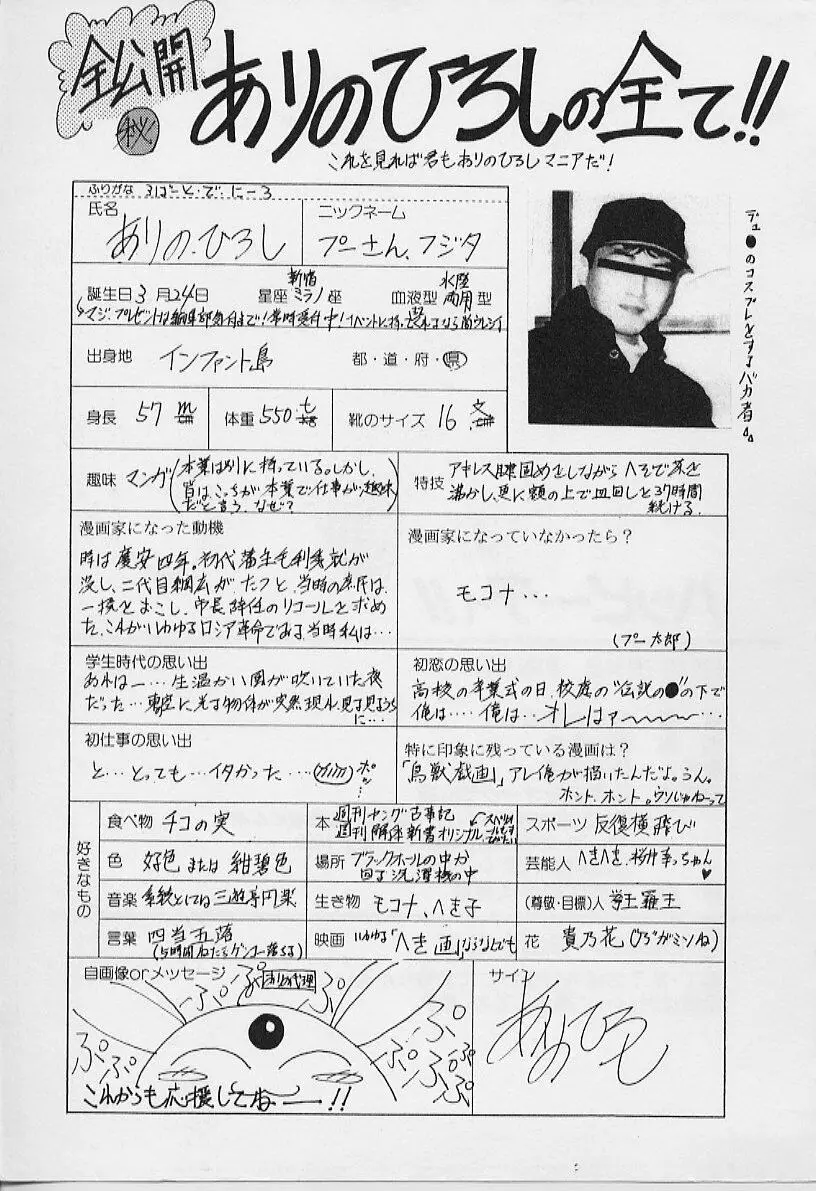 全公開
㊙
ありのひろしの全て!!
これを見れば君もありのひろしマニアだ!
ふりがな ろばーと・で・にーろ
氏名
ありの・ひろし
ニックネーム
プーさん、フジタ
誕生日 3月24日
星座 新宿ミラノ座
血液型 水陸両用型
マジ・プレゼントは編集部気付まで!常時受付中!
出身地 インファント島 都・道・府・県
身長 57 m
体重 550 t
靴のサイズ 16 文
デュ●のコスプレをするバカ者
趣味 マンガ(本業は別に持っている。しかし、
皆はこっちが本業で仕事が趣味
だと言う、なぜ?
特技 アキレス腱固めをしながらヘそで茶を
沸かし、更に額の上で皿回しを37時間
続ける。
漫画家になった動機
時は慶安四年。初代藩主毛利秀就が
没し、二代目綱広がたつと、当時の庶民は
一揆をおこし、市長辞任のリコールを求め
た、これがいわゆるロシア革命である。当時私は…
漫画家になっていなかったら?
モコナ…
(プー太郎)
学生時代の思い出
あれはー…生温かい風が吹いていた夜
だった…東空に光る物体が突然現れ、見る見るうち
に…
初恋の思い出
高校の卒業式の日、校庭の"伝説の●"の下で
俺は…俺は…オレはァ〜〜〜…
初仕事の思い出
と…とっても…イタかった…ポッ…
特に印象に残っている漫画は?
「鳥獣戯画」アレ俺が描いたんだよ。うん。
ホント、ホント。ウソじゃねーって
好きなもの
食べ物 チコの実
本 週刊ヤング古事記
週刊解体新書オリジナル
スポーツ 反復横飛び
色 好色または紺碧色
場所 ブラックホールの中か
回る洗濯機の中
芸能人 へきへき、桜井幸っちゃん♥
音楽 系統としては三遊亭円楽
生き物 モコナ、へき子
(尊敬・目標)人 拳王羅王
言葉 四当五落
(5時間ねたらゲンコー落ちる)
映画 いわゆる「へき画」ならなんでも
花 貴乃花
自画像orメッセージ
ぷぷぷ
ぷぷ
ぷぷぷ
ぷぷぷぷ
これからも応援してねー!!
サイン
ありのひろし